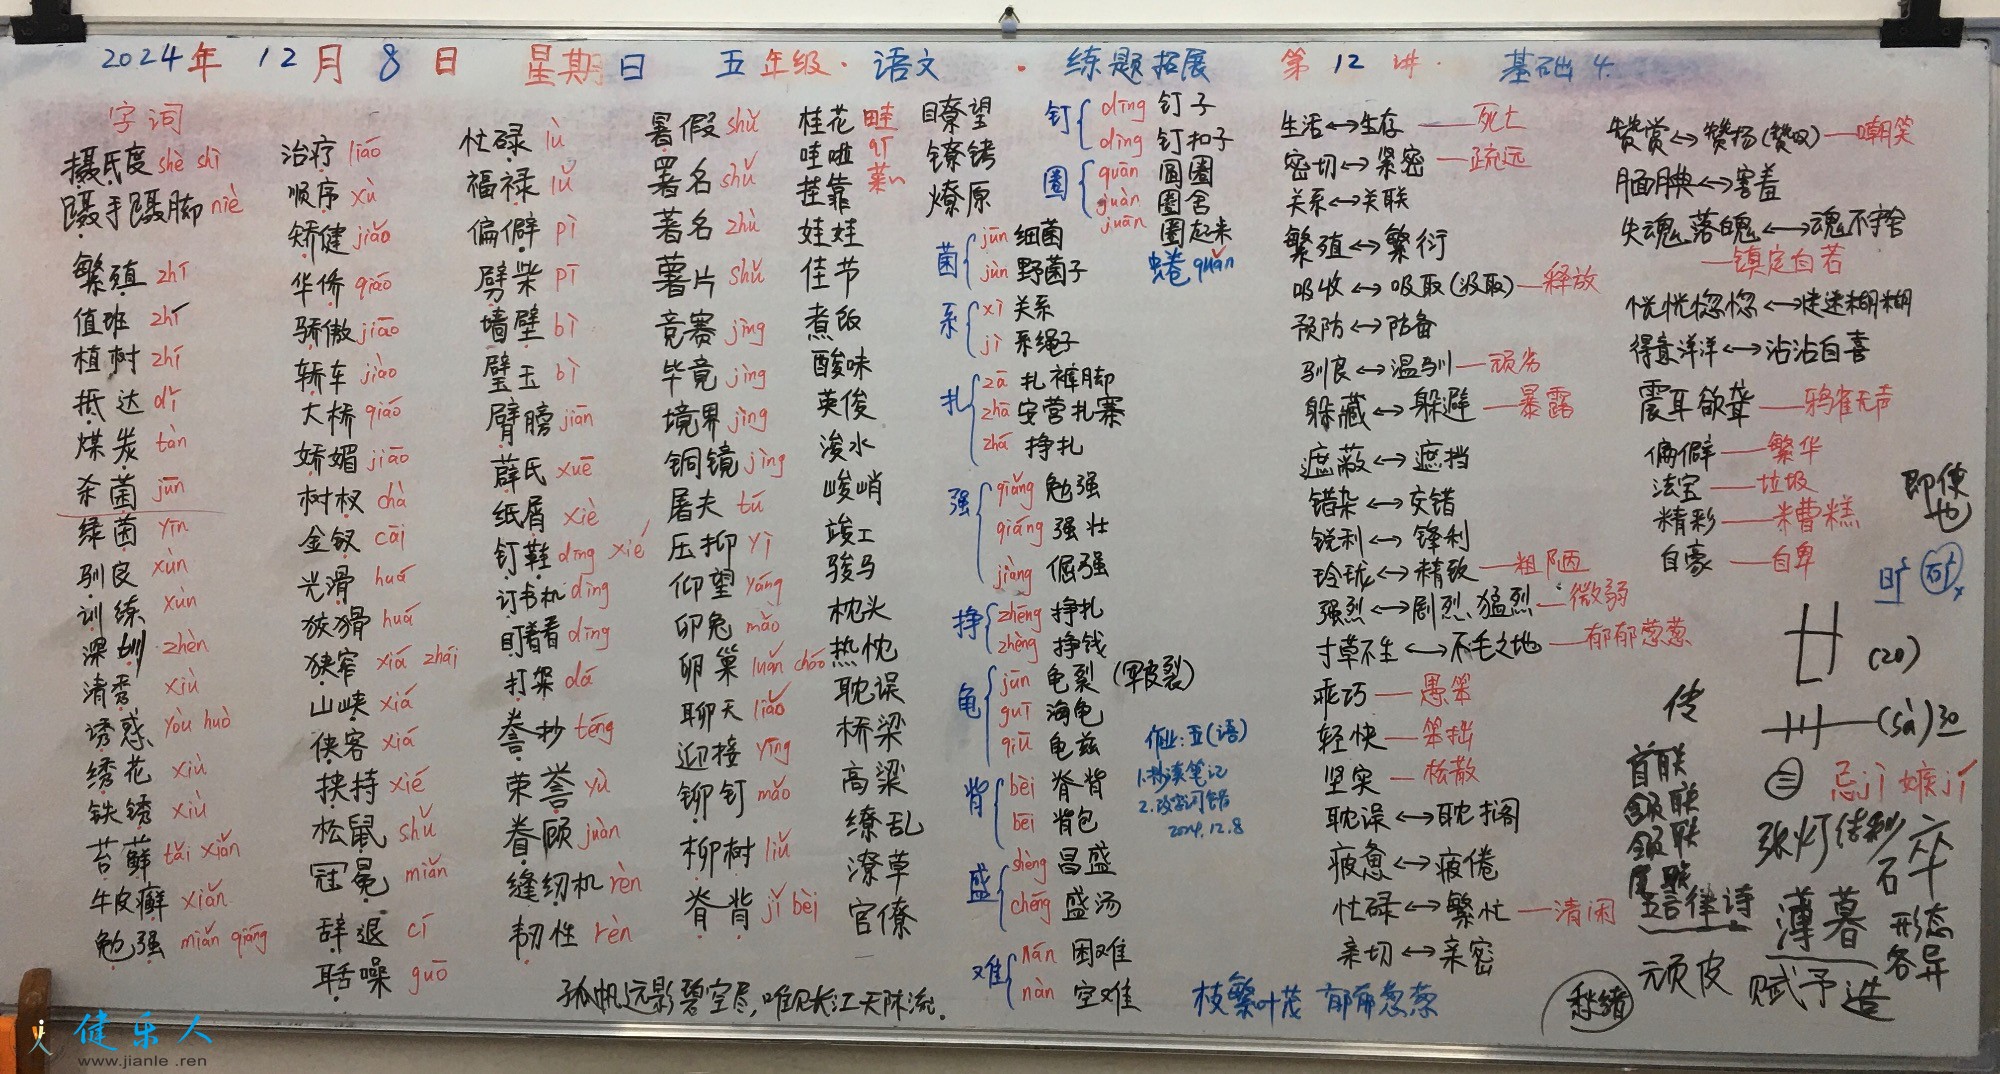 2024年 12月 8日 星期日 五年级·语文·练题拓展 第12讲·基础4.
字词
摄氏度 shè shì
蹑手蹑脚 niè
繁殖 zhí
值班 zhí
植树 zhí
抵达 dǐ
煤炭 tàn
杀菌 jūn
绿茵 yīn
驯良 xùn
训练 xùn
深圳 zhèn
清秀 xiù
诱惑 yòu huò
绣花 xiù
铁锈 xiù
苔藓 tái xiǎn
牛皮癣 xiǎn
勉强 miǎn qiǎng
治疗 liáo
顺序 xù
矫健 jiǎo
华侨 qiáo
骄傲 jiāo
轿车 jiào
大桥 qiáo
娇媚 jiāo
树杈 chà
金钗 cāi
光滑 huá
狡猾 huá
狭窄 xiá zhǎi
山峡 xiá
侠客 xiá
挟持 xié
松鼠 shǔ
冠冕 miǎn
辞退 cí
聒噪 guō
忙碌 lù
福禄 lù
偏僻 pì
劈柴 pī
墙壁 bì
璧玉 bì
臂膀 jiān
薛氏 xuē
纸屑 xiè
钉鞋 dīng xié
订书机 dìng
盯着看 dīng
打架 dǎ
誊抄 téng
荣誉 yù
眷顾 juàn
缝纫机 rèn
韧性 rèn
暑假 shǔ
署名 shǔ
著名 zhù
薯片 shǔ
竞赛 jìng
毕竟 jìng
境界 jìng
铜镜 jìng
屠夫 tú
压抑 yì
仰望 yǎng
卯兔 mǎo
卵巢 luǎn cháo
聊天 liáo
迎接 yíng
铆钉 mǎo
柳树 liǔ
脊背 jǐ bèi
桂花 畦 qí
哇啦 菜畦
挂靠
娃娃
佳节
煮饭
酸味
英俊
浚水
峻峭
竣工
骏马
枕头
热忱
耽误
桥梁
高粱
缭乱
潦草
官僚
瞭望
镣铐
燎原
菌 jūn 细菌
jùn 野菌子
系 xì 关系
jì 系绳子
扎 zā 扎裤脚
zhā 安营扎寨
zhá 挣扎
强 qiǎng 勉强
qiáng 强壮
jiàng 倔强
挣 zhēng 挣扎
zhèng 挣钱
龟 jūn 龟裂(皲裂)
guī 海龟
qiū 龟兹
背 bèi 脊背
bēi 背包
盛 shèng 昌盛
chéng 盛汤
难 nán 困难
nàn 空难
钉 dīng 钉子
dìng 钉扣子
圈 quān 圆圈
juàn 圈舍
juān 圈起来
蜷 quán
作业:五(语)
1.抄读笔记
2.改完问错
2024.12.8
孤帆远影碧空尽,唯见长江天际流.
枝繁叶茂 郁郁葱葱
生活↔生存——死亡
密切↔紧密——疏远
关系↔关联
繁殖↔繁衍
吸收↔吸取(汲取)—释放
预防↔防备
驯良↔温驯—顽劣
躲藏↔躲避—暴露
遮蔽↔遮挡
错杂↔交错
锐利↔锋利
玲珑↔精致—粗陋
强烈↔剧烈、猛烈—微弱
寸草不生↔不毛之地—郁郁葱葱
乖巧—愚笨
轻快—笨拙
坚实—松散
耽误↔耽搁
疲惫↔疲倦
忙碌↔繁忙—清闲
亲切↔亲密
赞赏↔赞扬(赞叹)—嘲笑
腼腆↔害羞
失魂落魄↔魂不守舍
—镇定自若
恍恍惚惚↔迷迷糊糊
得意洋洋↔沾沾自喜
震耳欲聋—鸦雀无声
偏僻—繁华
法宝—垃圾
精彩—糟糕
自豪—自卑
即使
也
旷 矿
廿 (20)
卅—(sà)30
传
首联
颔联
颈联
尾联
五言律诗
㊂ 忌jì 嫉jí
张灯结彩
碎
石卒
薄暮
形态各异
顽皮
赋予 造
愁绪
健乐人
www.jianle.ren